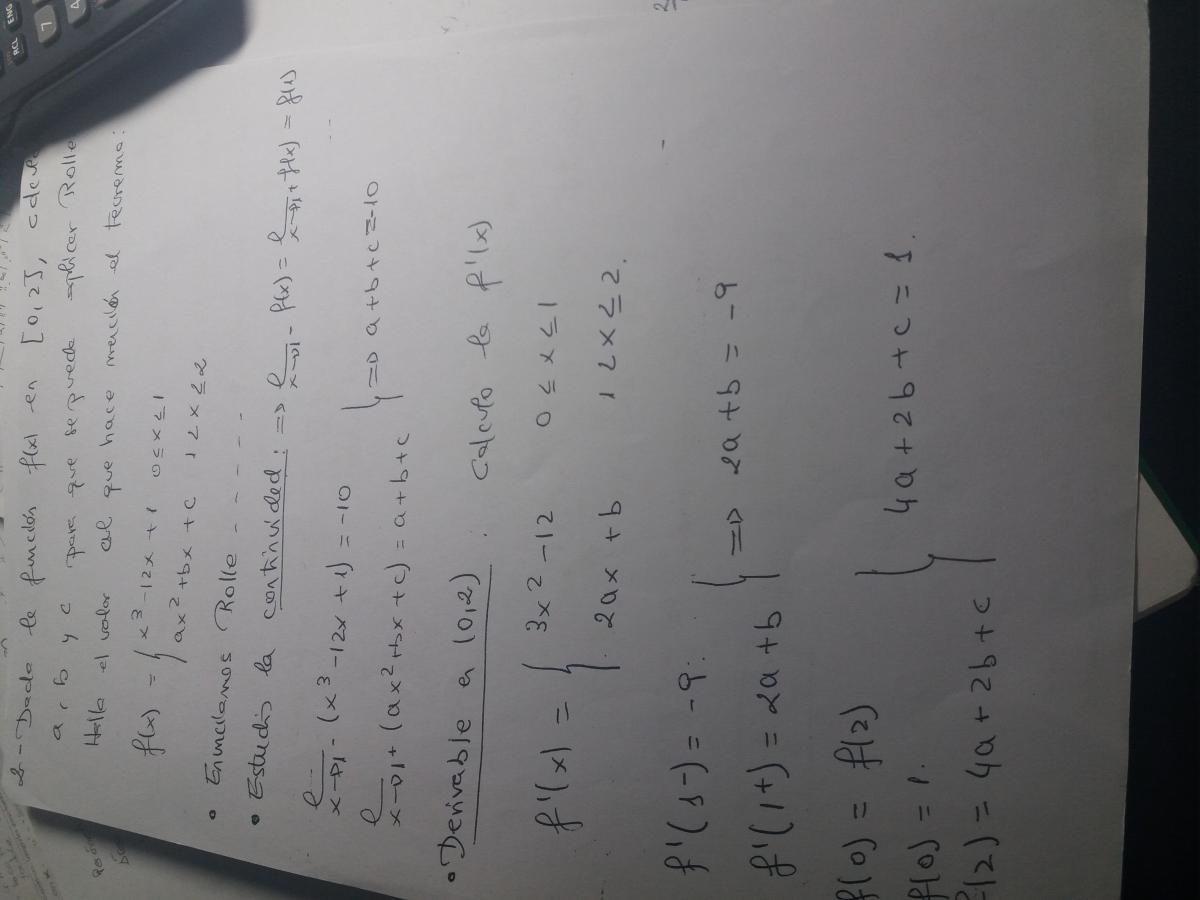 2- Dada la función f(x) en [0,2], calcula
a, b y c para que se pueda aplicar Rolle
Halla el valor al que hace mención el teorema:
f(x) = { x³-12x+1 0≤x≤1
ax²+bx+c 1<x≤2
• Enunciamos Rolle - - - - -
• Estudio la continuidad: => lim x→1- f(x) = lim x→1+ f(x) = f(1)
lim x→1- (x³-12x+1) = -10
lim x→1+ (ax²+bx+c) = a+b+c } => a+b+c=-10
• Derivable en (0,2) : calculo la f'(x)
f'(x) = { 3x²-12 0≤x≤1
2ax+b 1<x≤2.
f'(1-) = -9
f'(1+) = 2a+b } => 2a+b = -9
f(0) = f(2)
f(0) = 1.
f(2) = 4a+2b+c } 4a+2b+c = 1.
RCL
ENG
7
4